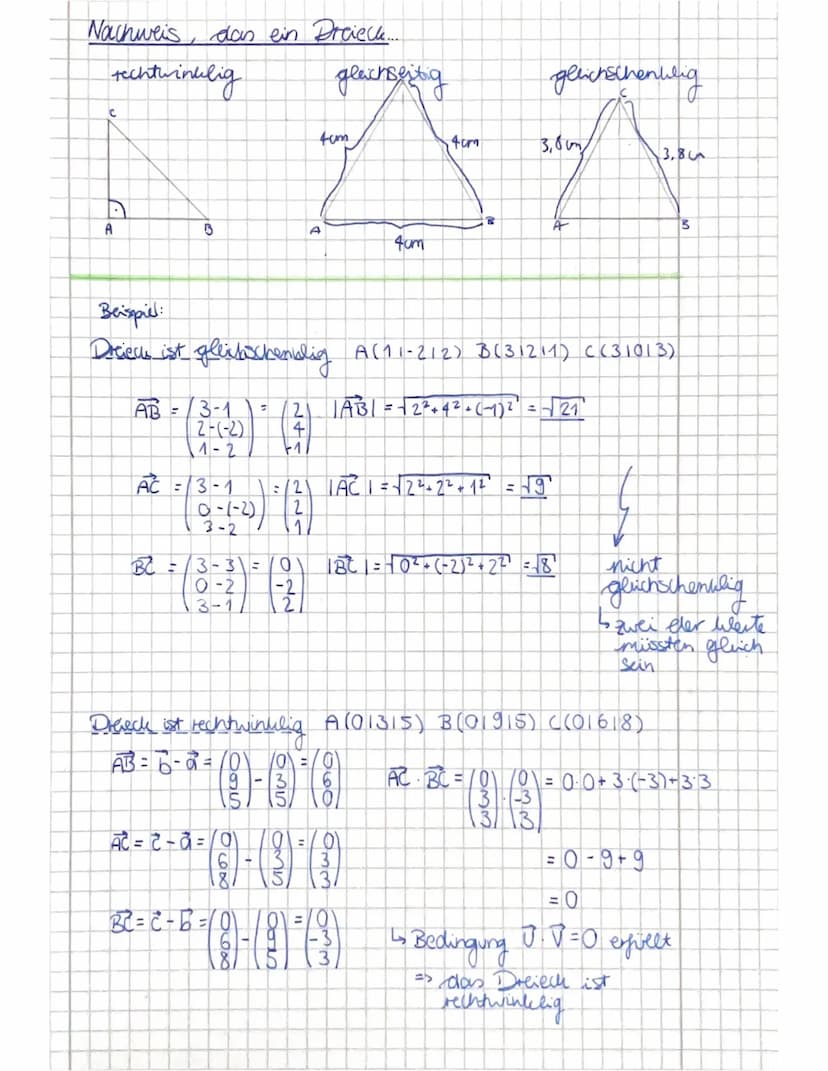 Nachweis, das ein Dreieck...
rechtwinklig gleichseitig gleichschenklig
C
C
4cm 4cm
3,8cm 3,8cm
A B
A B
A B
4cm
Beispiel:
Dreieck ist gleichschenklig A(1|-2|2) B(3|2|1) C(3|0|3)
AB = (3-1 2-(-2) 1-2) = (2 4 -1) |AB| = √2²+4²+(-1)² = √21
AC = (3-1 0-(-2) 3-2) = (2 2 1) |AC| = √2²+2²+1² = √9
BC = (3-3 0-2 3-1) = (0 -2 2) |BC| = √0²+(-2)²+2² = √8
nicht
gleichschenklig
↳ zwei der Werte
müssten gleich
sein
Dreieck ist rechtwinklig A(0|3|5) B(0|9|5) C(0|6|8)
AB = b - a = (0 9 5) - (0 3 5) = (0 6 0)
AC = c - a = (0 6 8) - (0 3 5) = (0 3 3)
BC = c - b = (0 6 8) - (0 9 5) = (0 -3 3)
AC · BC = (0 3 3) · (0 -3 3) = 0·0+3·(-3)+3·3
= 0 - 9 + 9
= 0
↳ Bedingung U · V = 0 erfüllt
=> das Dreieck ist
rechtwinklig